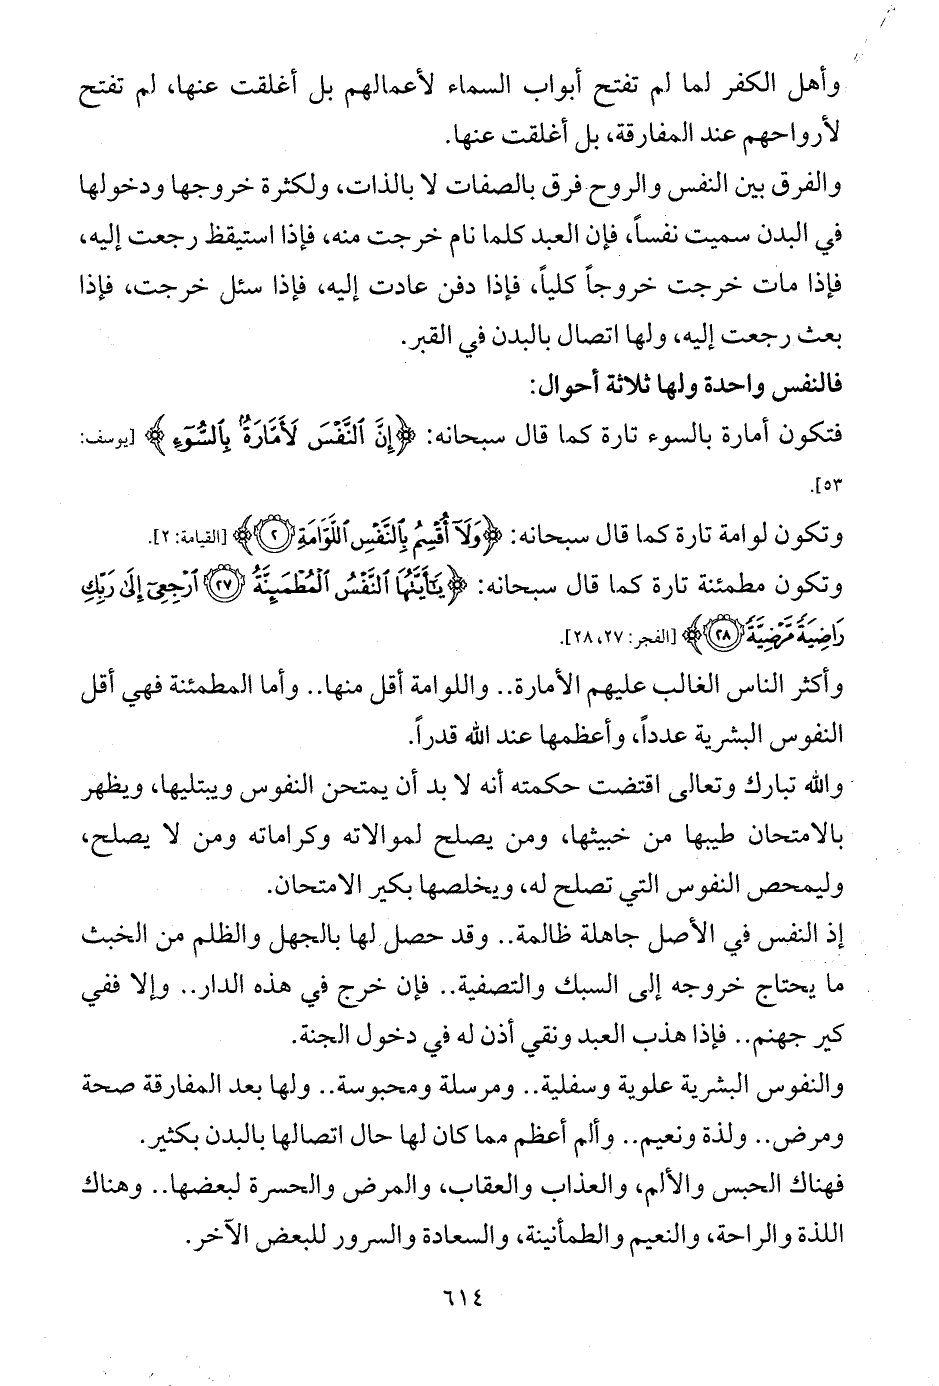 وأهل الكفر لما لم تفتح أبواب السماء لأعمالهم بل أغلقت عنها، لم تفتح
لأرواحهم عند المفارقة، بل أغلقت عنها.
والفرق بين النفس والروح فرق بالصفات لا بالذات، ولكثرة خروجها ودخولها
في البدن سميت نفساً، فإن العبد كلما نام خرجت منه، فإذا استيقظ رجعت إليه،
فإذا مات خرجت خروجاً كلياً، فإذا دفن عادت إليه، فإذا سئل خرجت، فإذا
بعث رجعت إليه، ولها اتصال بالبدن في القبر.
فالنفس واحدة ولها ثلاثة أحوال:
فتكون أمارة بالسوء تارة كما قال سبحانه: ﴿إِنَّ ٱلنَّفْسَ لَأَمَّارَةٌۢ بِٱلسُّوٓءِ﴾ [يوسف:
٥٣].
وتكون لوامة تارة كما قال سبحانه: ﴿وَلَآ أُقْسِمُ بِٱلنَّفْسِ ٱللَّوَّامَةِ ٢﴾ [القيامة: ٢].
وتكون مطمئنة تارة كما قال سبحانه: ﴿يَٰٓأَيَّتُهَا ٱلنَّفْسُ ٱلْمُطْمَئِنَّةُ ٢٧ ٱرْجِعِىٓ إِلَىٰ رَبِّكِ
رَاضِيَةً مَّرْضِيَّةً ٢٨﴾ [الفجر: ٢٧، ٢٨].
وأكثر الناس الغالب عليهم الأمارة.. واللوامة أقل منها.. وأما المطمئنة فهي أقل
النفوس البشرية عدداً، وأعظمها عند الله قدراً.
والله تبارك وتعالى اقتضت حكمته أنه لا بد أن يمتحن النفوس ويبتليها، ويظهر
بالامتحان طيبها من خبيثها، ومن يصلح لموالاته وكراماته ومن لا يصلح،
وليمحص النفوس التي تصلح له، ويخلصها بكير الامتحان.
إذ النفس في الأصل جاهلة ظالمة.. وقد حصل لها بالجهل والظلم من الخبث
ما يحتاج خروجه إلى السبك والتصفية.. فإن خرج في هذه الدار.. وإلا ففي
كير جهنم.. فإذا هذب العبد ونقي أذن له في دخول الجنة.
والنفوس البشرية علوية وسفلية.. ومرسلة ومحبوسة.. ولها بعد المفارقة صحة
ومرض.. ولذة ونعيم.. وألم أعظم مما كان لها حال اتصالها بالبدن بكثير.
فهناك الحبس والألم، والعذاب والعقاب، والمرض والحسرة لبعضها.. وهناك
اللذة والراحة، والنعيم والطمأنينة، والسعادة والسرور للبعض الآخر.
٦١٤